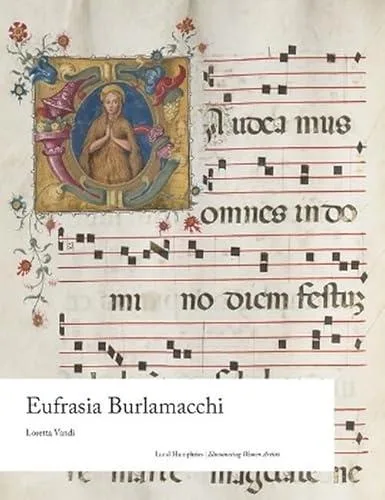 audea mus
omnes in do
mi no diem festuz
Eufrasia Burlamacchi
Loretta Vandi
Lund Humphries | Illuminating Women Artists
magdale ne